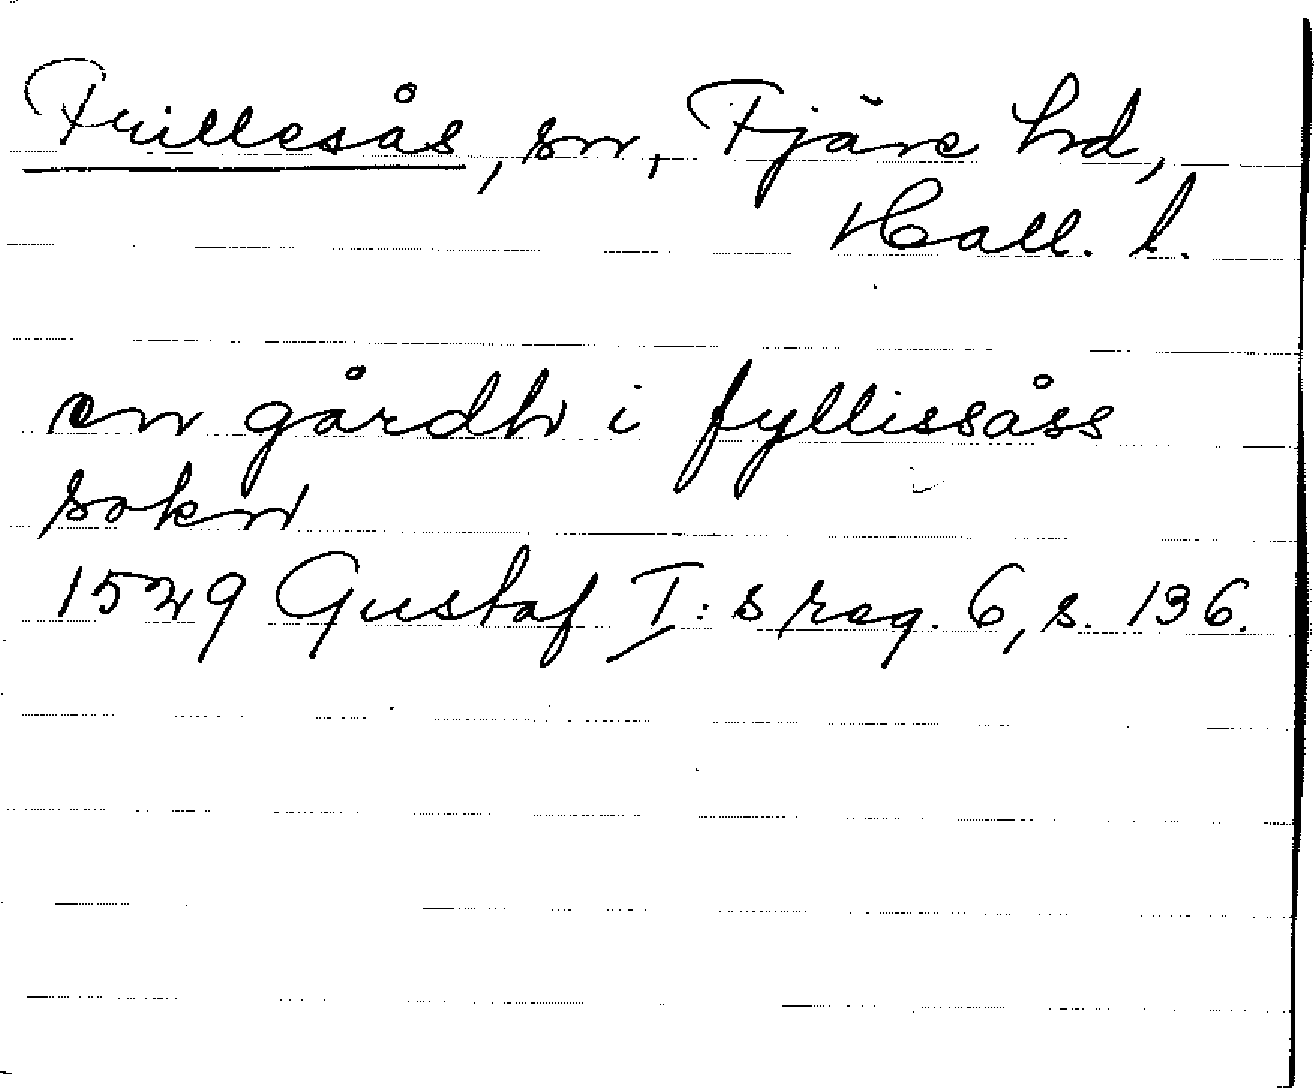 Frillesås, sn, Fjäre hd,
Hall. l.
en gårdh i fyllissåss
sokn
1529 Gustaf I:s reg. 6, s. 136.